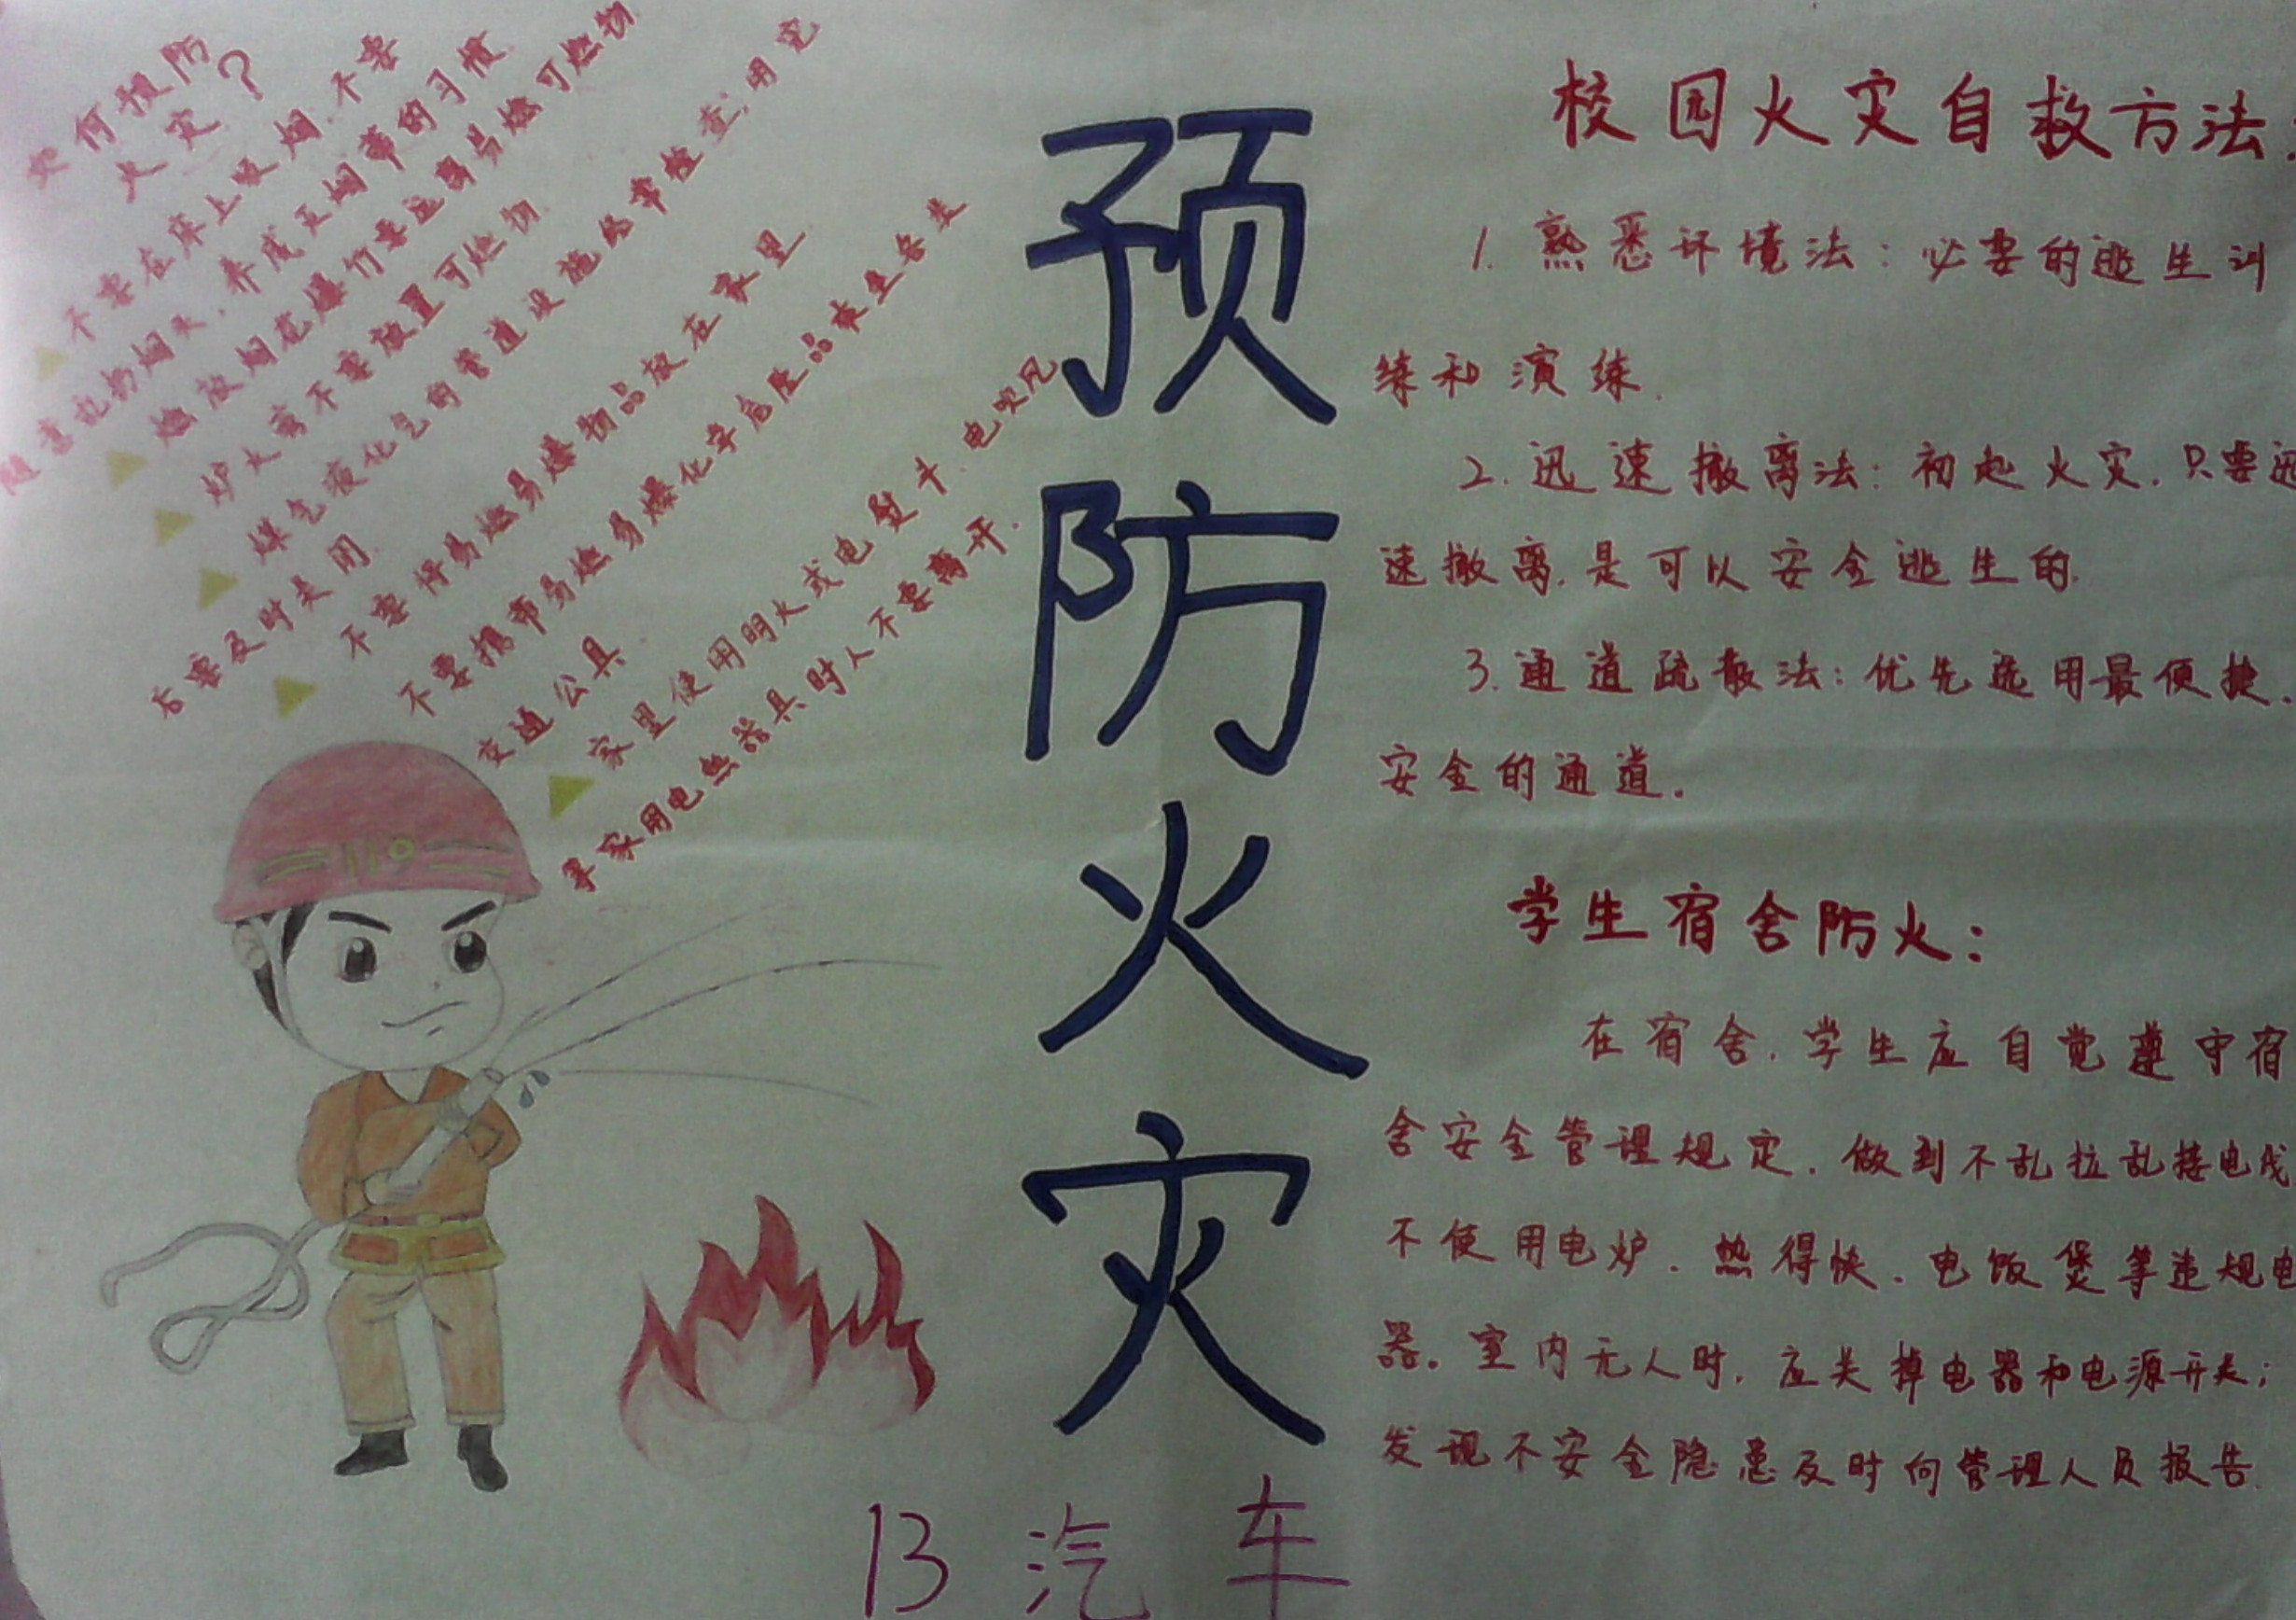 如何预防
火灾？
不要在床上吸烟.不要
随意乱扔烟头.养成灭烟蒂的习惯.
燃放烟花爆竹要远离易燃可燃物
炉火旁不要放置可燃物.
煤气液化气的管道设施经常检查,用完
后要及时关闭.
不要将易燃易爆物品放在家里
不要携带易燃易爆化学危险品乘坐各类
交通公具
家里使用明火或电熨斗.电吹风
等家用电热器具时人不要离开.
110
预防火灾
13 汽车
校园火灾自救方法.
1. 熟悉环境法：必要的逃生训
练和演练.
2. 迅速撤离法：初起火灾.只要迅
速撤离.是可以安全逃生的.
3. 通道疏散法：优先选用最便捷.
安全的通道.
学生宿舍防火：
在宿舍.学生应自觉遵守宿
舍安全管理规定.做到不乱拉乱接电线
不使用电炉.热得快.电饭煲等违规电
器。室内无人时.应关掉电器和电源开关；
发现不安全隐患及时向管理人员报告.